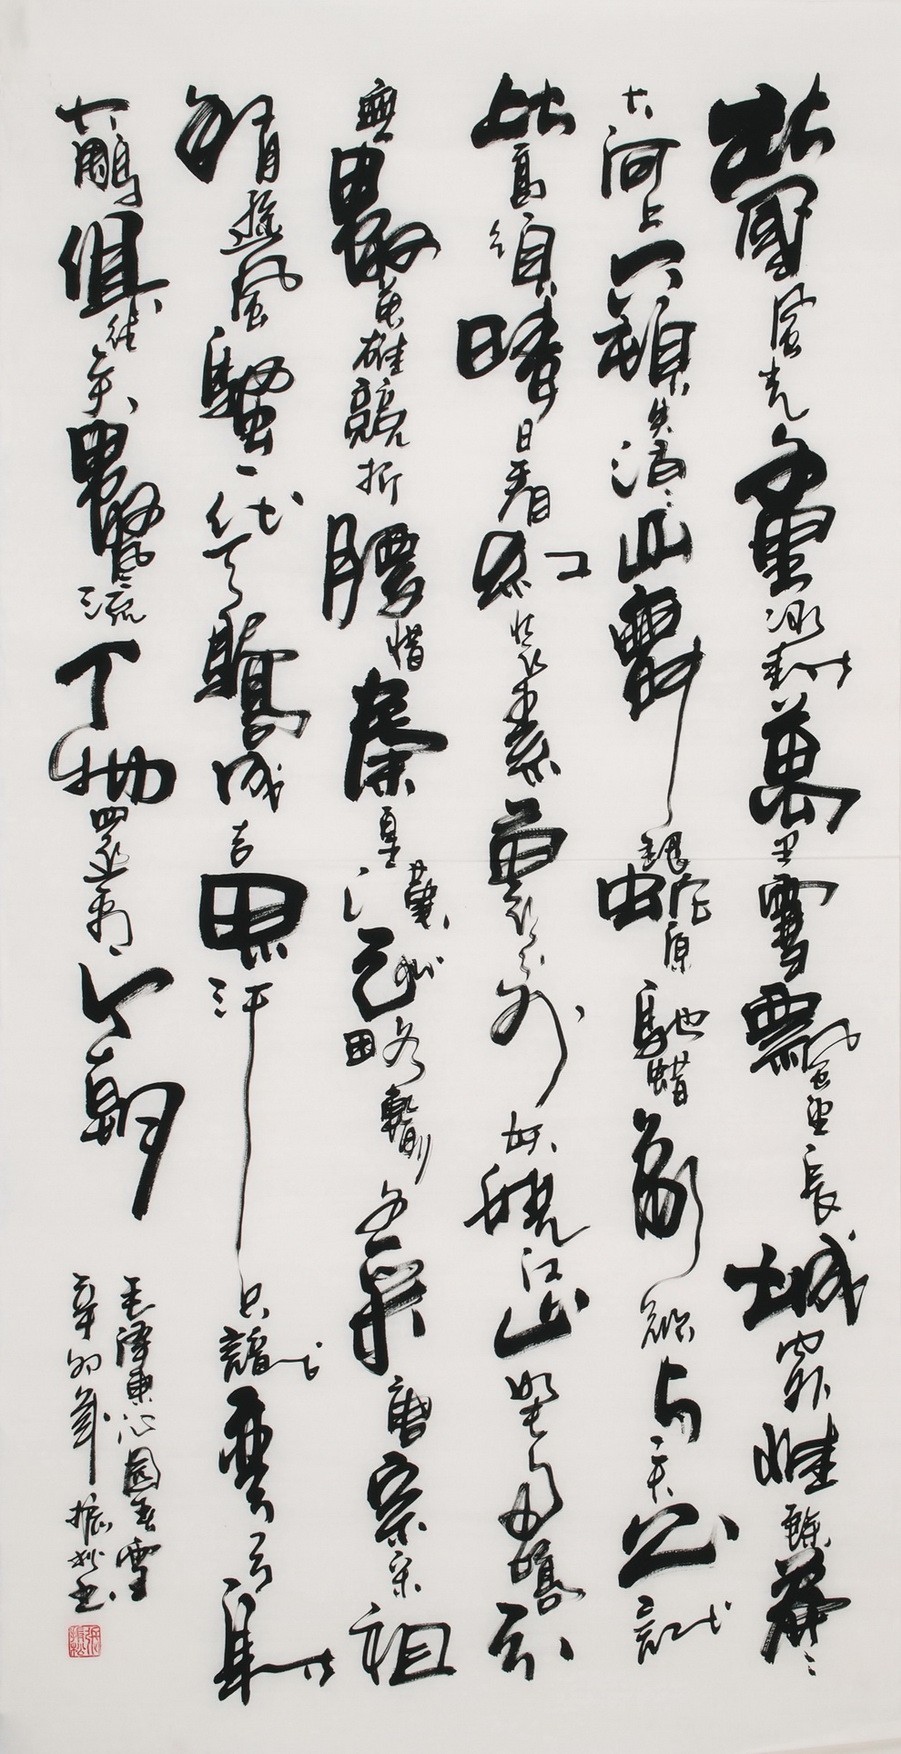 北國風光千里冰封萬里雪飄望長城內外惟餘莽〻
大河上下頓失滔〻山舞銀蛇原馳蜡象欲與天公試
比高須晴日看紅裝素裹分外妖嬈江山如此多嬌引
無數英雄競折腰惜秦皇漢武略輸文采唐宗宋祖
稍遜風騷一代天驕成吉思汗只識彎弓射
大鵰俱往矣數風流人物還看今朝
毛澤東沁園春雪
辛卯年振秋書